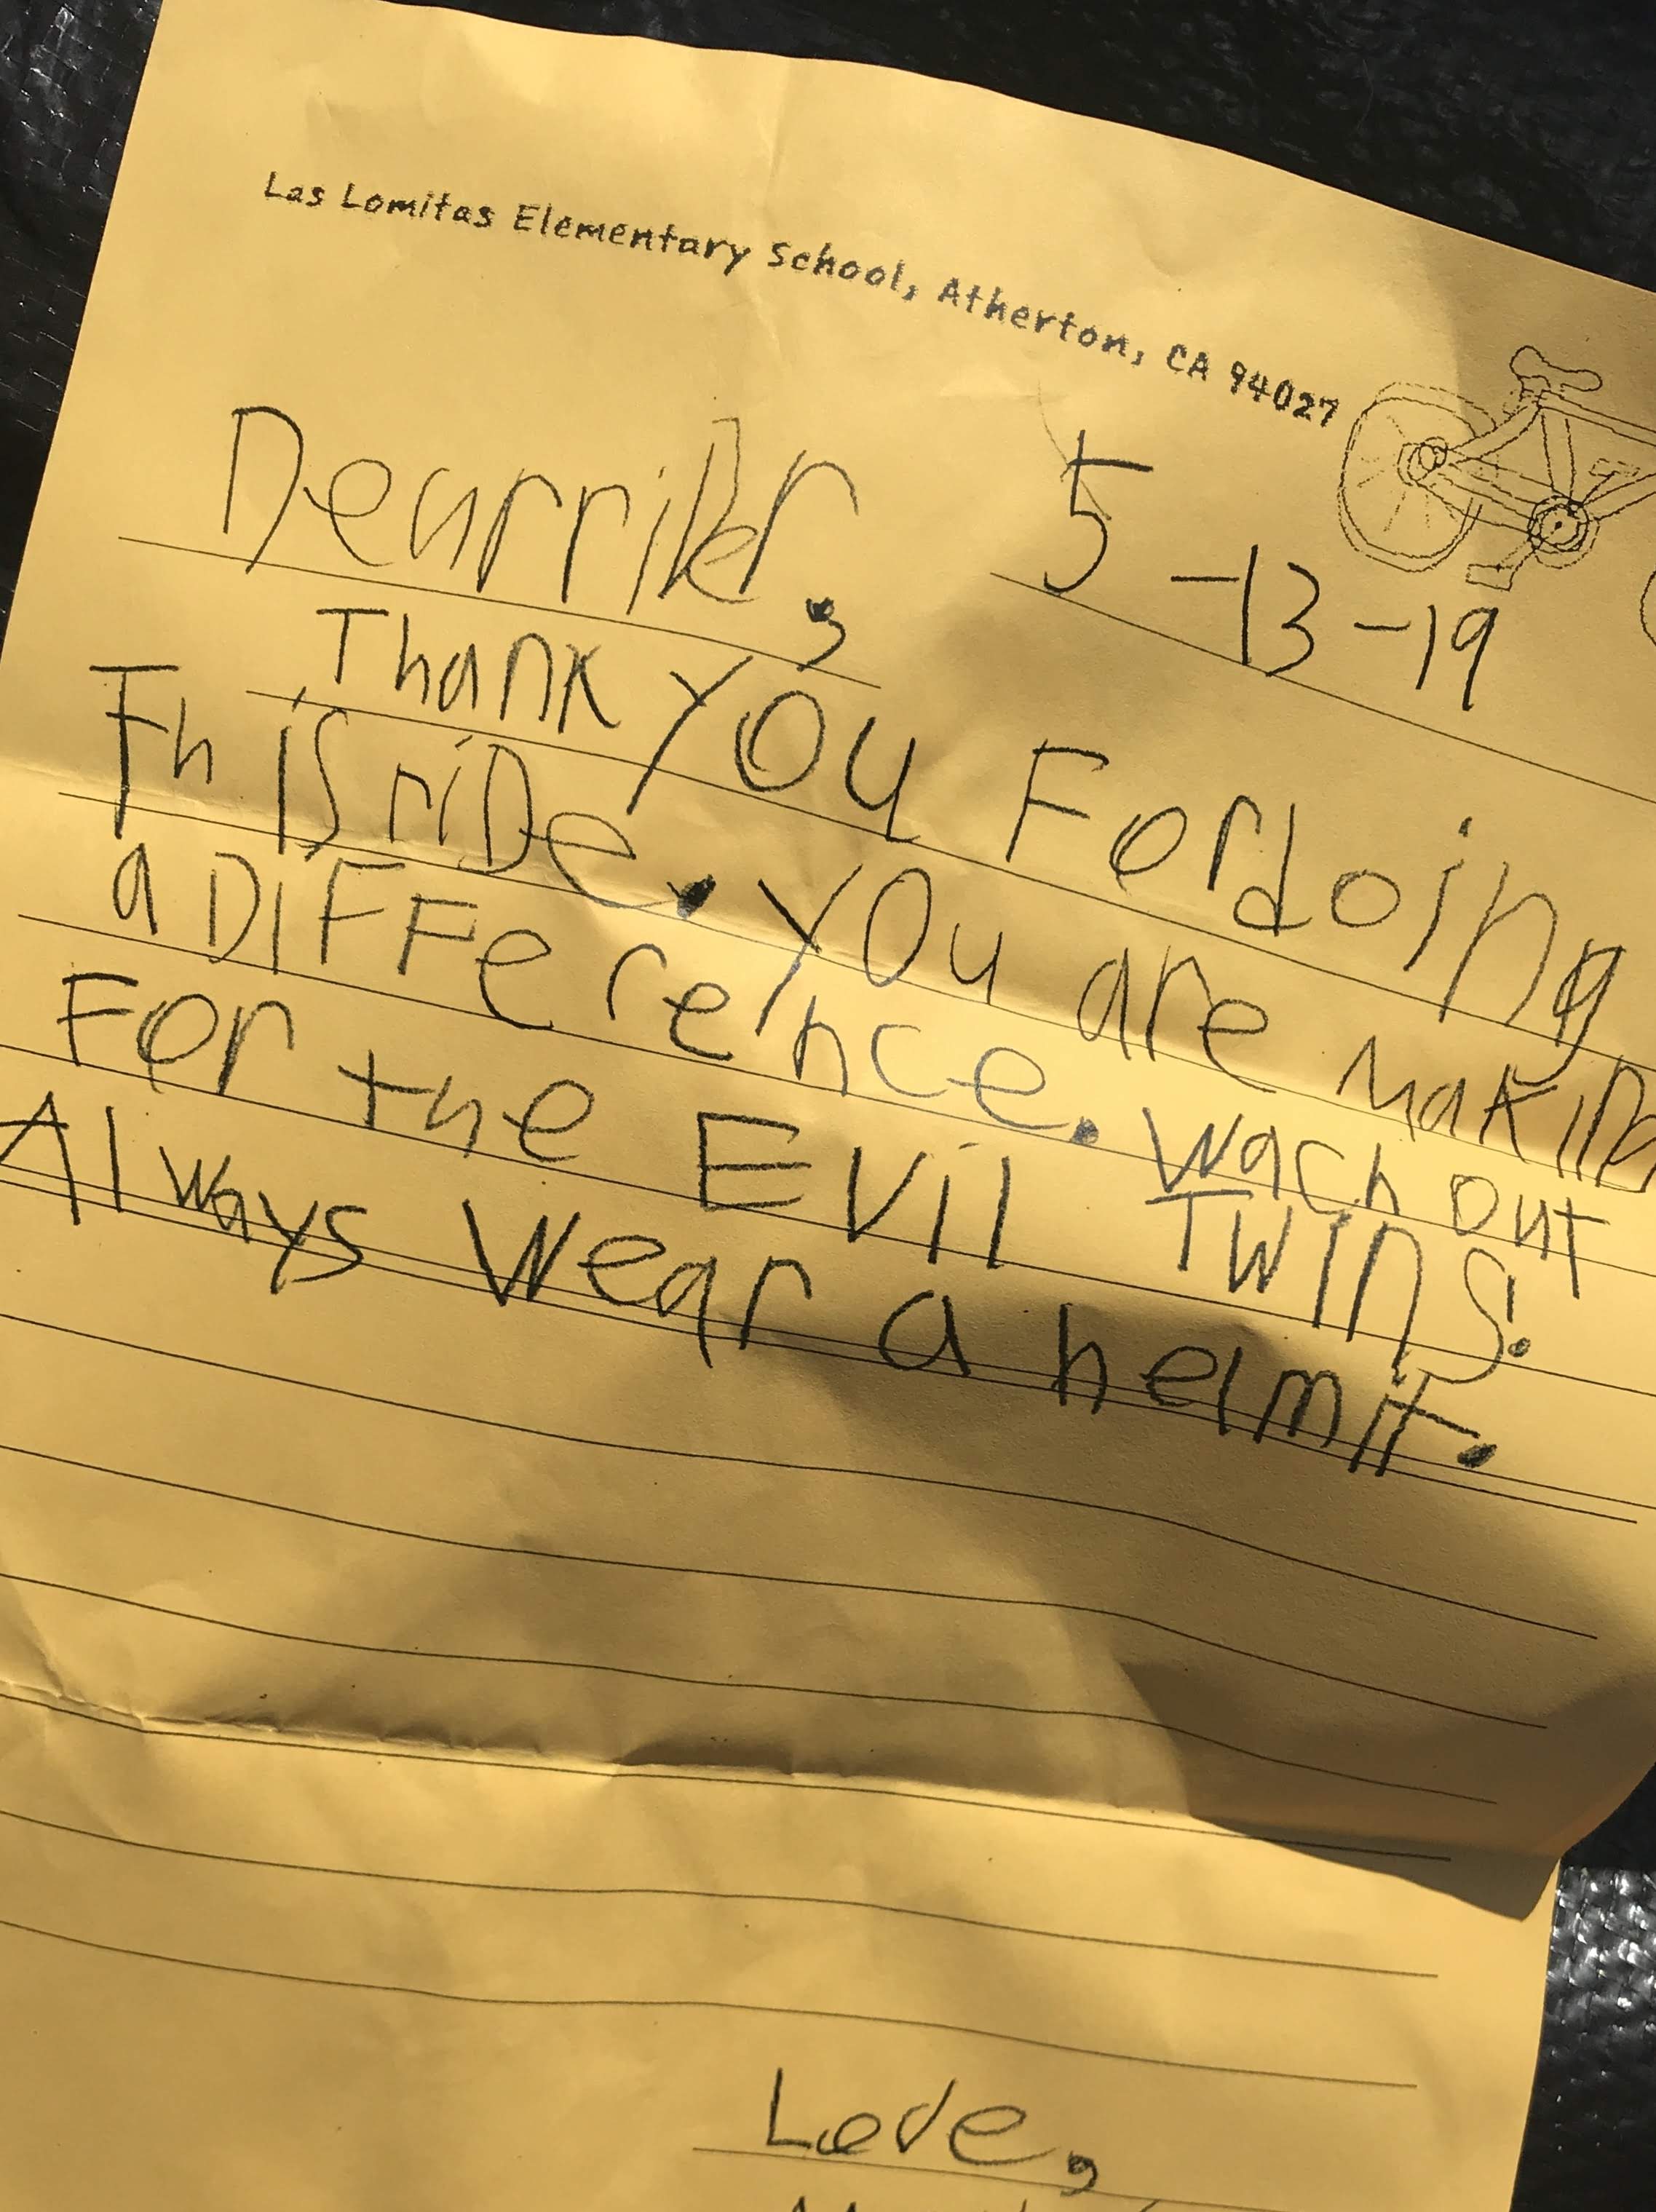 Las Lomitas Elementary School, Atherton, CA 94027
Dear riDer,
5-13-19
Thank YOU For doing
This riDe. YOu are making
a DIFFerence. Wach out
For the EVil TWins.
Always Wear a helmit.
Love,